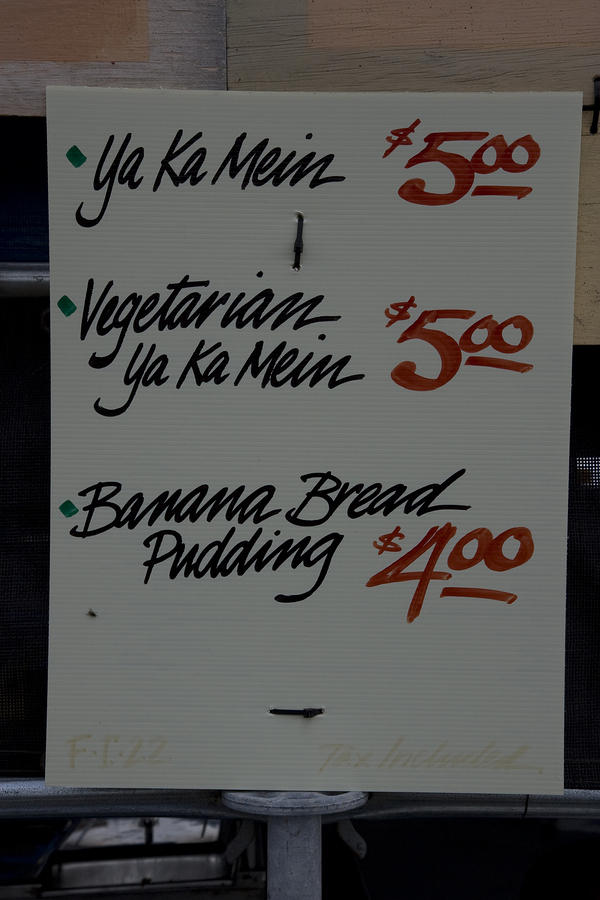 Ya Ka Mein $5.00
Vegetarian
Ya Ka Mein $5.00
Banana Bread
Pudding $4.00
Tax Included